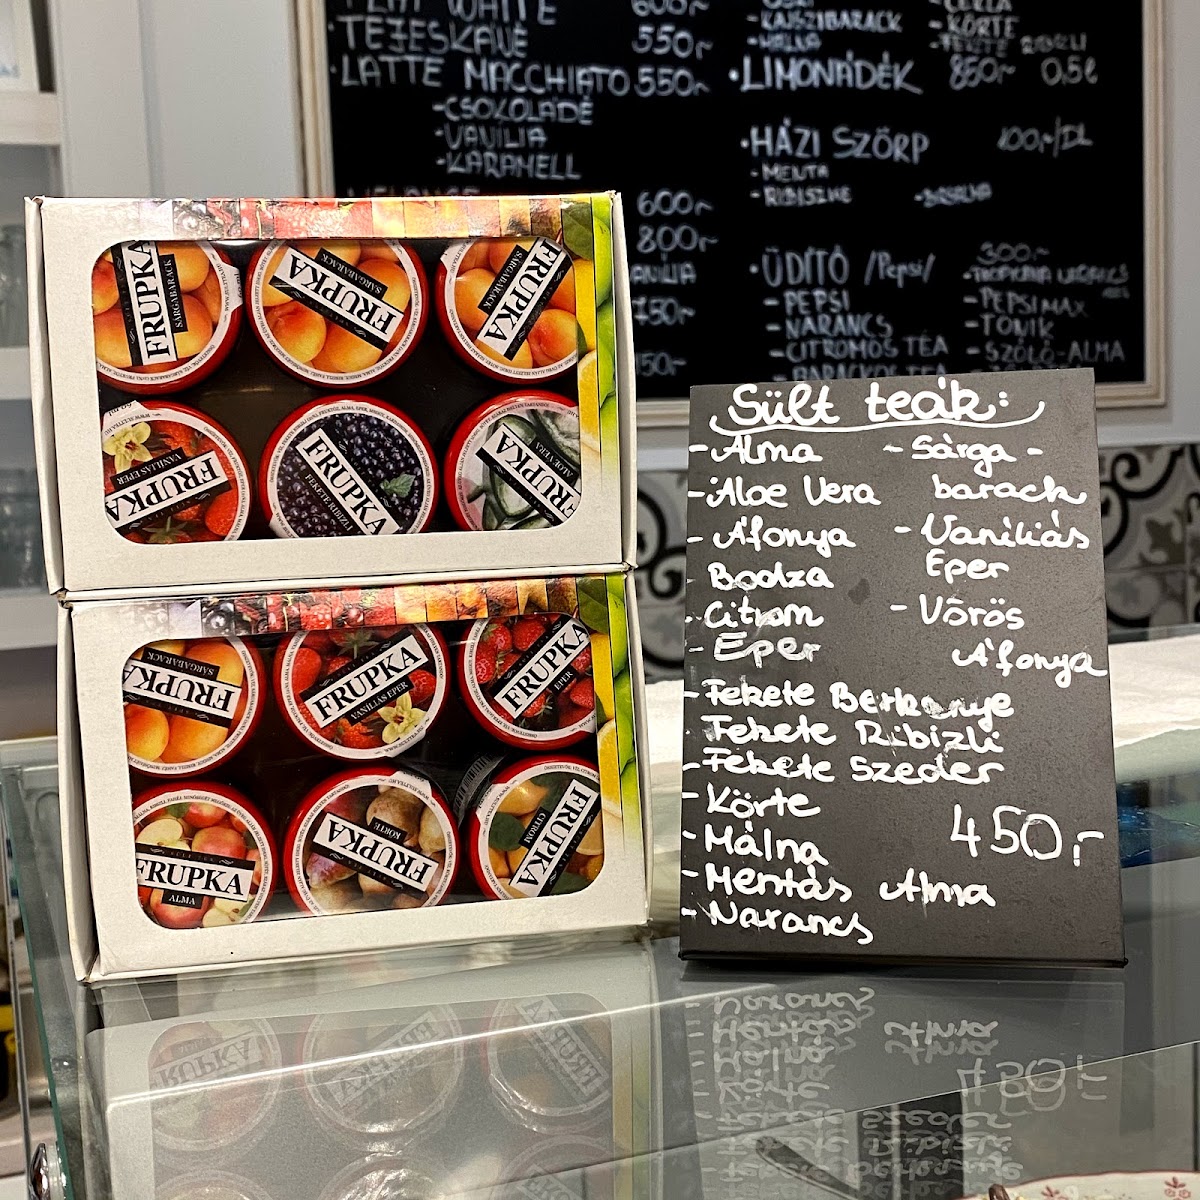 FLAT WHITE 600,-
TEJESKÁVÉ 550,-
• LATTE MACCHIATO 550,-
-CSOKOLÁDÉ
-VANÍLIA
-KARAMELL
600,-
800,-
- KAJSZIBARACK
- MÁLNA
- KÖRTE
- FEKETE RIBIZLI
•LIMONÁDÉK 850,- 0,5l
•HÁZI SZÖRP 100,-/DL
- MENTA
- RIBISZKE
•ÜDÍTŐ /Pepsi/ 300,-
- PEPSI
- NARANCS
-CITROMOS TEA
- BARACKOS TEA
- PEPSI MAX
-TONIK
- SZŐLŐ-ALMA
FRUPKA
SÁRGABARACK
FRUPKA
SÁRGABARACK
FRUPKA
SÁRGABARACK
FRUPKA
VANÍLIÁS EPER
FRUPKA
FEKETE RIBIZLI
FRUPKA
ALOE VERA
FRUPKA
SÁRGABARACK
FRUPKA
VANÍLIÁS EPER
FRUPKA
EPER
FRUPKA
ALMA
FRUPKA
KÖRTE
FRUPKA
CITROM
Sült teák:
- Alma
- Aloe Vera
- Áfonya
- Bodza
- Citrom
- Eper
- Fekete Berkenye
- Fekete Ribizli
- Fekete Szeder
- Körte
- Málna
- Mentás Alma
- Narancs
- Sárga -
barack
- Vaníliás
Eper
- Vörös
Áfonya
450,-